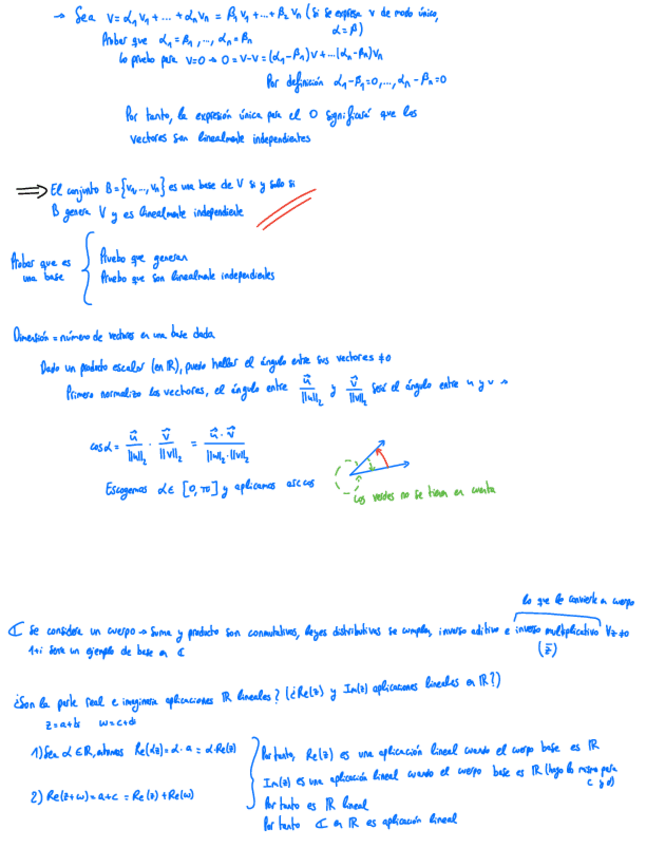 → Sea v = α₁v₁ + ... + αₙvₙ = β₁v₁ + ... + β₂vₙ (Si se expresa v de modo único,
α = β)
Probar que α₁ = β₁, ..., αₙ = βₙ
Lo pruebo para v=0 → 0 = v-v = (α₁-β₁)v + ...(αₙ-βₙ)vₙ
Por definición α₁-β₁=0, ..., αₙ-βₙ=0
Por tanto, la expresión única para el 0 significará que los
vectores son linealmente independientes
⇒ El conjunto B = {v₁, ..., vₙ} es una base de V si y solo si
B genera V y es linealmente independiente
Probar que es
una base
Pruebo que generan
Pruebo que son linealmente independientes
Dimensión = número de vectores en una base dada
Dado un producto escalar (en ℝ), puedo hallar el ángulo entre sus vectores ≠0
Primero normalizo los vectores, el ángulo entre u⃗/||u||₂ y v⃗/||v||₂ será el ángulo entre u y v →
cos α = u⃗/||u||₂ · v⃗/||v||₂ = u⃗·v⃗/||u||₂·||v||₂
Escogemos α ∈ [0, π] y aplicamos arccos
Los verdes no se tienen en cuenta
lo que le convierte a cuerpo
ℂ se considera un cuerpo → Suma y producto son conmutativos, leyes distributivas se cumplen, inverso aditivo e inverso multiplicativo ∀z≠0
1+i sería un ejemplo de base en ℂ
¿Son la parte real e imaginaria aplicaciones ℝ lineales? (¿Re(z) y Im(z) aplicaciones lineales en ℝ?)
z=a+bi w=c+di
1) Sea α ∈ ℝ, entonces Re(αz) = α·a = α·Re(z)
2) Re(z+w) = a+c = Re(z)+Re(w)
Por tanto, Re(z) es una aplicación lineal cuando el cuerpo base es ℝ
Im(z) es una aplicación lineal cuando el cuerpo base es ℝ (hago lo mismo para
Por tanto es ℝ lineal
Por tanto ℂ en ℝ es aplicación lineal